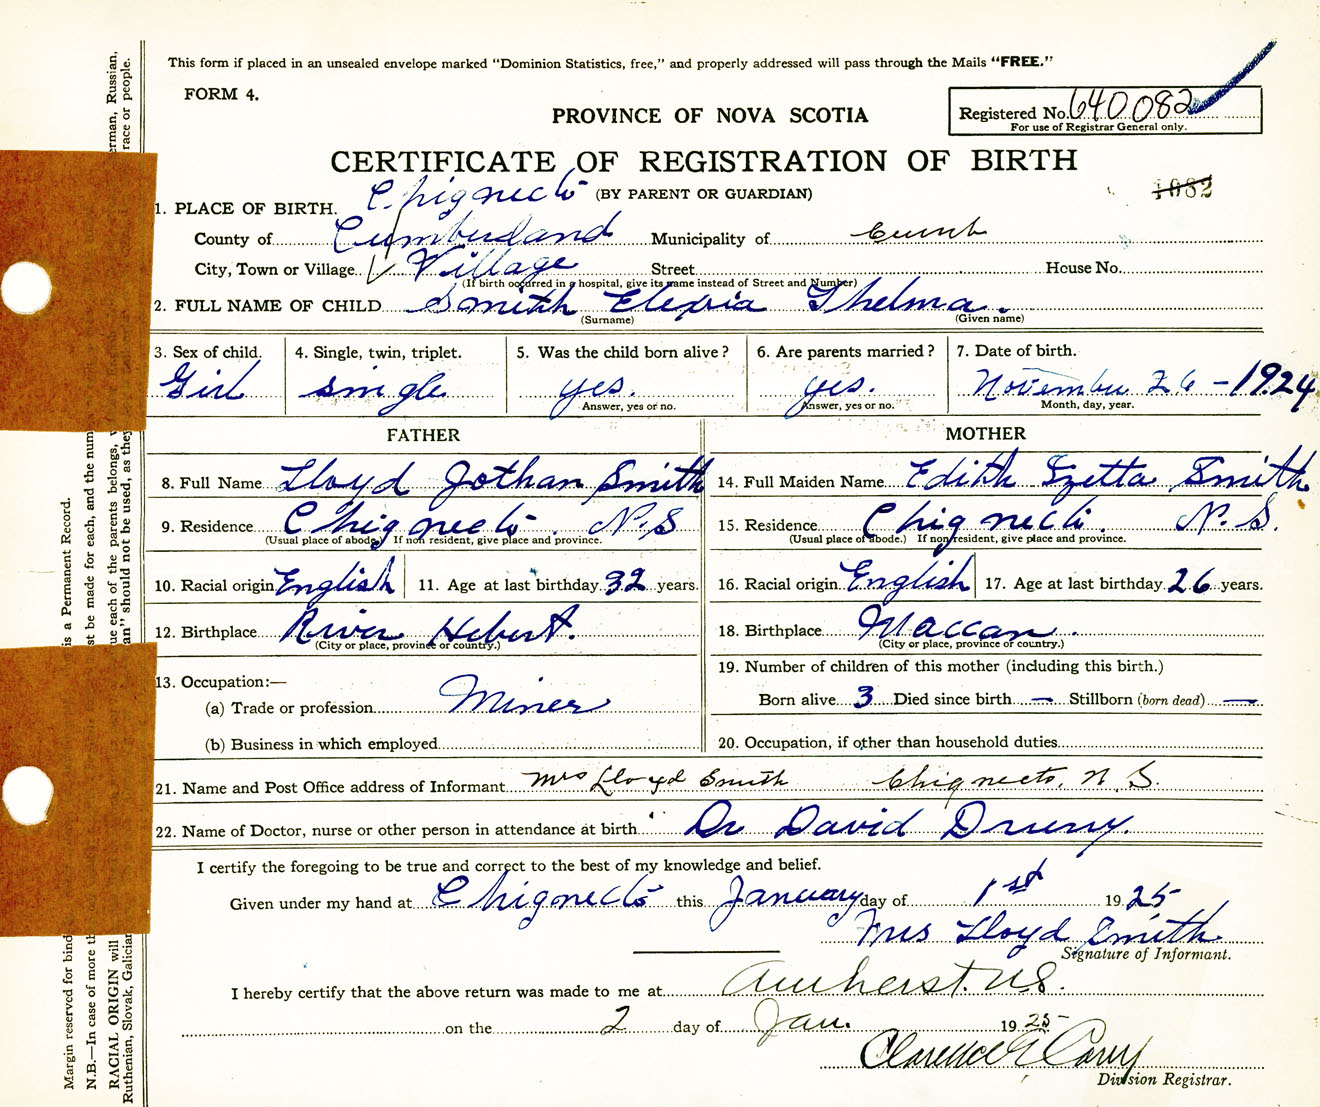 This form if placed in an unsealed envelope marked "Dominion Statistics, free," and properly addressed will pass through the Mails "FREE."
FORM 4.
PROVINCE OF NOVA SCOTIA
Registered No. 640082
For use of Registrar General only.
CERTIFICATE OF REGISTRATION OF BIRTH
(BY PARENT OR GUARDIAN)
1082
1. PLACE OF BIRTH. Chignecto
County of Cumberland Municipality of Cumb
City, Town or Village Village Street House No.
(If birth occurred in a hospital, give its name instead of Street and Number)
2. FULL NAME OF CHILD Smith Thelma.
(Surname) (Given name)
3. Sex of child. 4. Single, twin, triplet. 5. Was the child born alive? 6. Are parents married? 7. Date of birth.
Girl single yes. yes. November 26 - 1924
Answer, yes or no. Answer, yes or no. Month, day, year.
FATHER MOTHER
8. Full Name Lloyd Jothan Smith 14. Full Maiden Name Edith Izetta Smith
9. Residence Chignecto. N.S 15. Residence Chignecto. N.S.
(Usual place of abode.) If non resident, give place and province. (Usual place of abode.) If non resident, give place and province.
10. Racial origin English 11. Age at last birthday 32 years. 16. Racial origin English 17. Age at last birthday 26 years.
12. Birthplace River Hebert. 18. Birthplace Maccan.
(City or place, province or country.) (City or place, province or country.)
19. Number of children of this mother (including this birth.)
13. Occupation:—
(a) Trade or profession Miner Born alive 3 Died since birth — Stillborn (born dead) —
(b) Business in which employed 20. Occupation, if other than household duties
21. Name and Post Office address of Informant Mrs Lloyd Smith Chignecto, N.S.
22. Name of Doctor, nurse or other person in attendance at birth Dr David Drury.
I certify the foregoing to be true and correct to the best of my knowledge and belief.
Given under my hand at Chignecto this January day of 1st 1925
Mrs Lloyd Smith
Signature of Informant.
I hereby certify that the above return was made to me at Amherst. N.S.
on the 2 day of Jan. 1925
Clarence Corey
Division Registrar.
Margin reserved for bind
is a Permanent Record.
N.B.—In case of more th
st be made for each, and the num
RACIAL ORIGIN will
ue each of the parents belongs,
erman, Russian,
Ruthenian, Slovak, Galician
an" should not be used, as they
race or people.